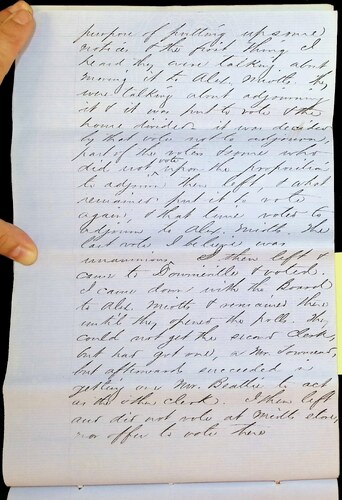 purpose of putting up some
notice & the first thing I
heard they were talking about
moving it to Alex. Mintts. They
were talking about adjourning
it & it was put to vote & the
house divided. it was decided
by that vote not to adjourn,
part of the voters some who
did not vote upon the proposition
to adjourn then left, & what
remained put it to vote
again, & that time voted to
adjourn to Alex. Mintts. The
last vote I believe was
unanimous. I then left &
came to Downieville & voted.
I came down with the Board
to Alex. & remained there
until they opened the polls. They
could not get the second Clerk,
but had got one, a Mr. Townsend,
but afterwards succeeded in
getting one Mr. Beattie to act
as the other clerk. I then left
and did not vote at
nor offer to vote there